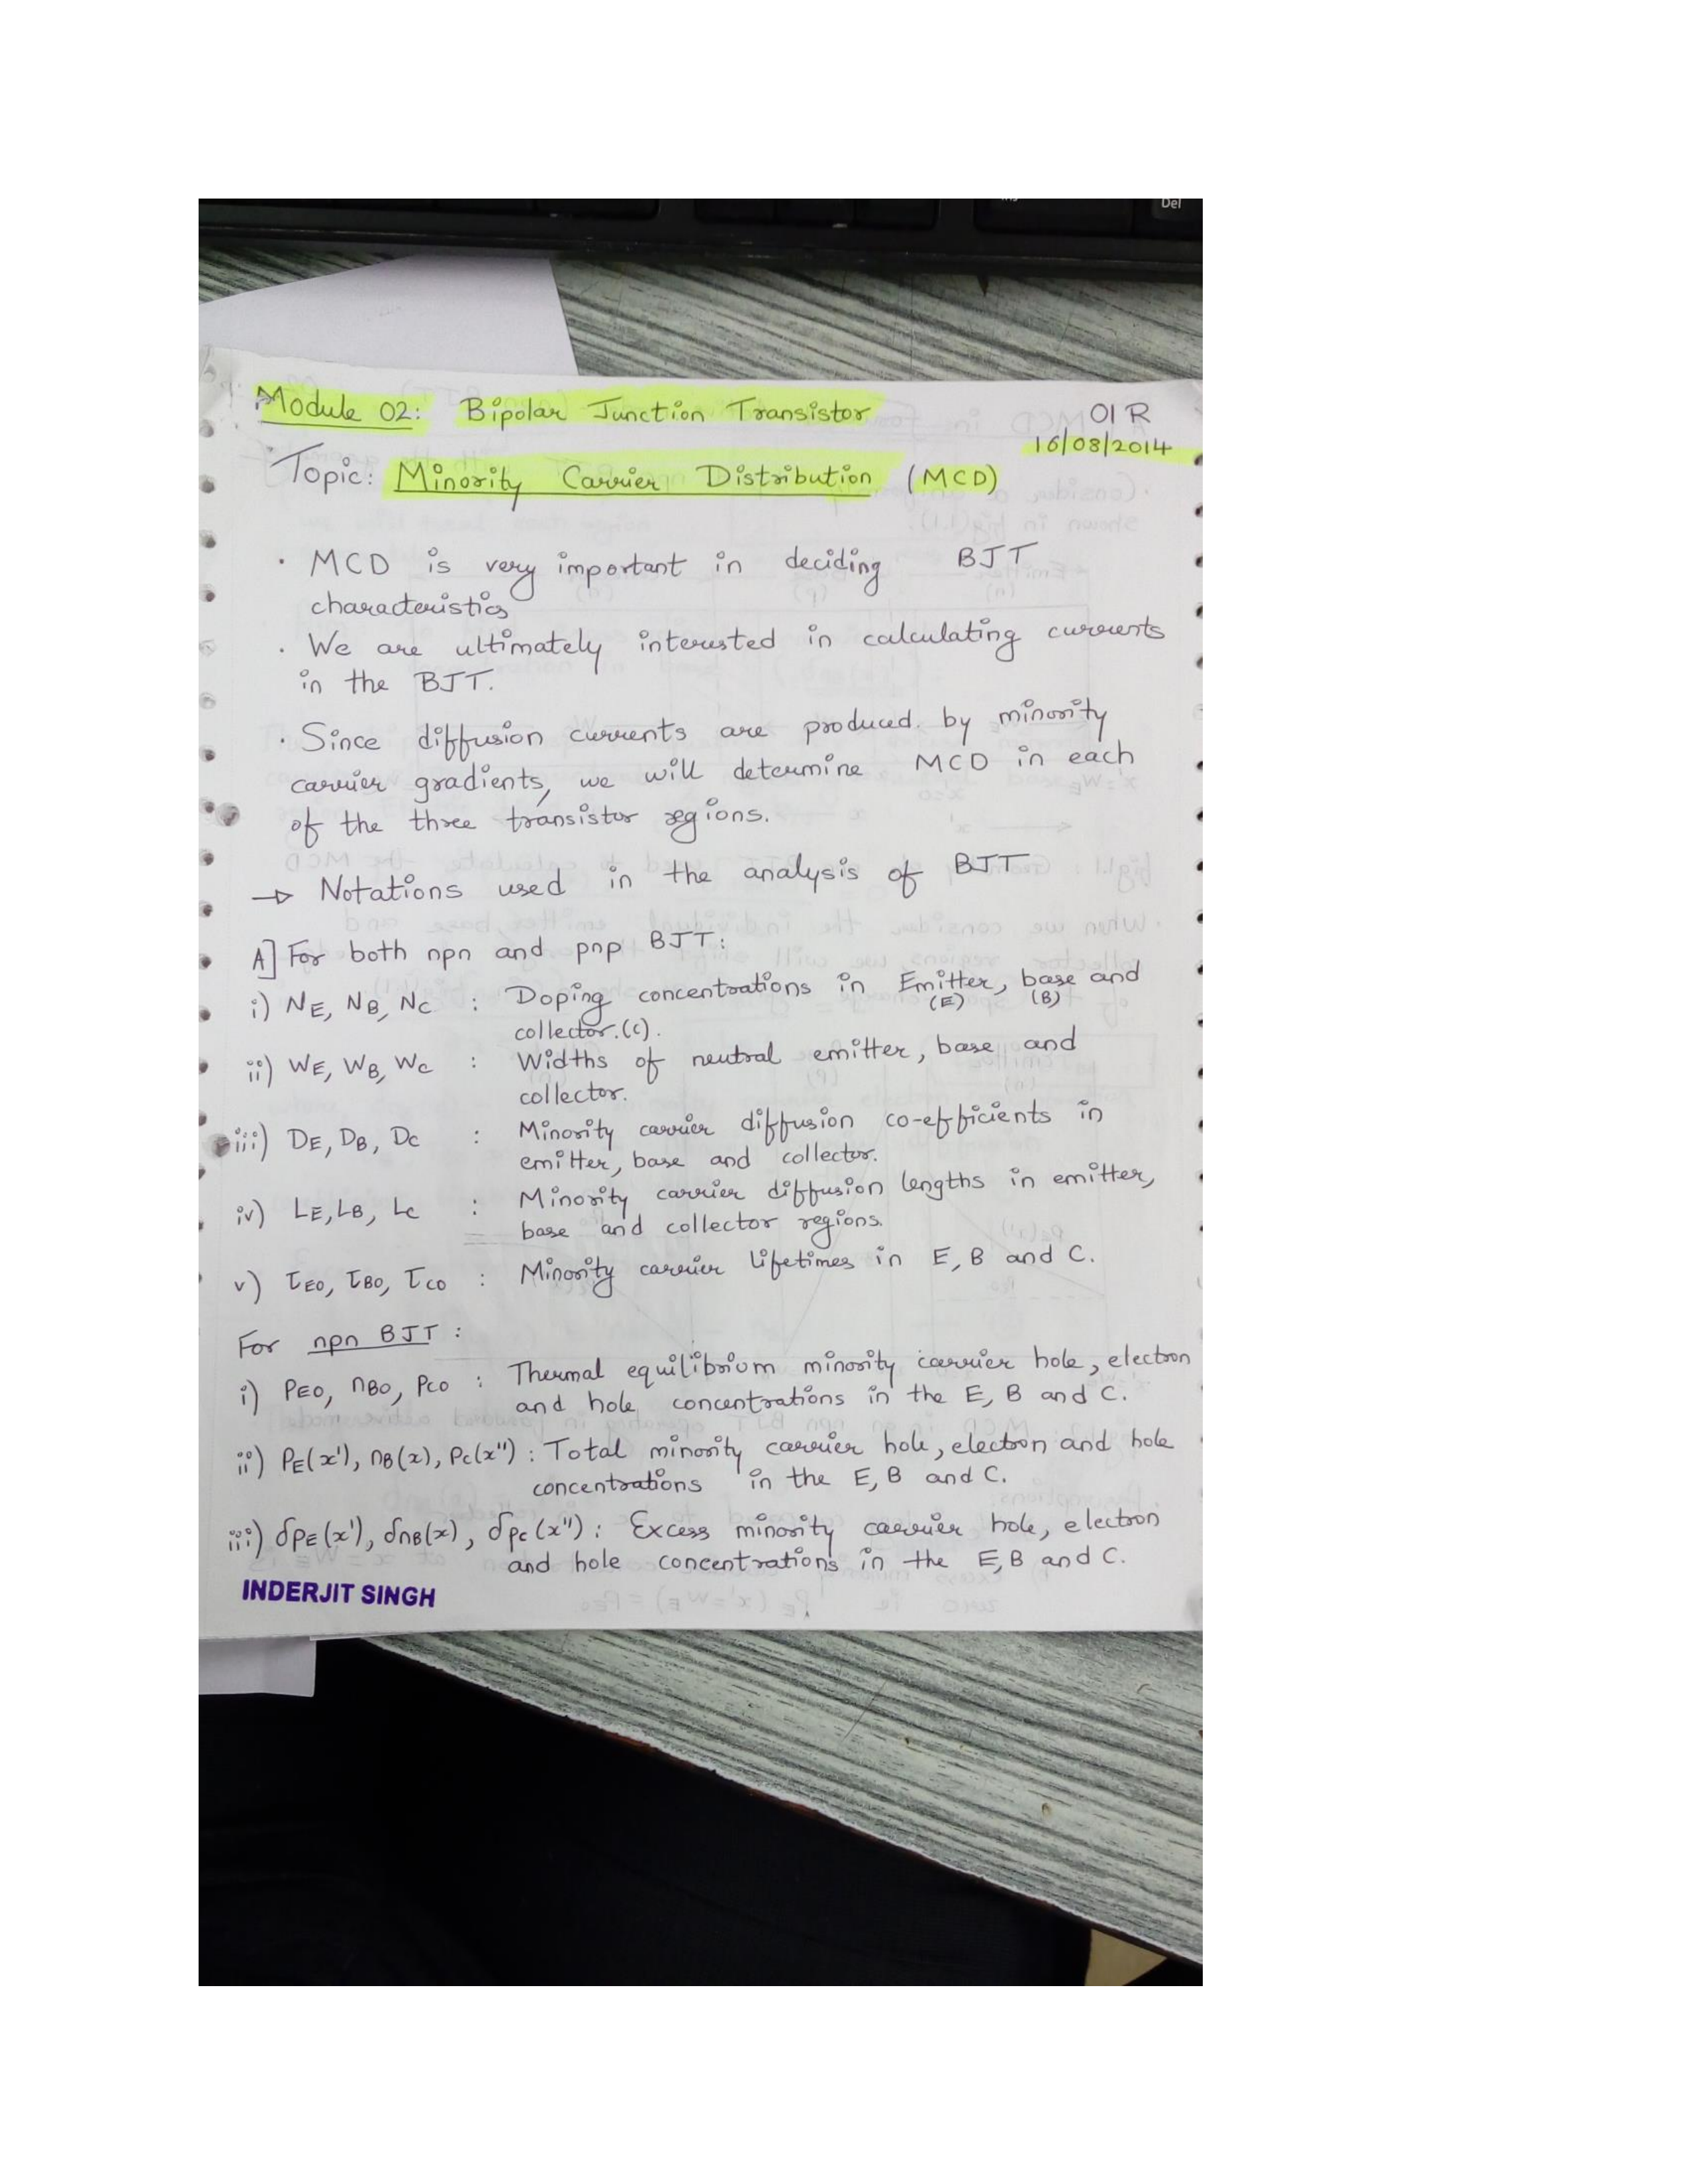 Del
Module 02: Bipolar Junction Transistor
01 R
16/08/2014
Topic: Minority Carrier Distribution (MCD)
· MCD is very important in deciding BJT
characteristics
· We are ultimately interested in calculating currents
in the BJT.
· Since diffusion currents are produced by minority
carrier gradients, we will determine MCD in each
of the three transistor regions.
→ Notations used in the analysis of BJT
A] For both npn and pnp BJT:
i) NE, NB, NC : Doping concentrations in Emitter, base and
(E) (B)
collector.(C).
ii) WE, WB, WC : Widths of neutral emitter, base and
collector.
iii) DE, DB, DC : Minority carrier diffusion co-efficients in
emitter, base and collector.
iv) LE, LB, LC : Minority carrier diffusion lengths in emitter,
base and collector regions.
v) τEO, τBO, τCO : Minority carrier lifetimes in E, B and C.
For npn BJT :
i) PEO, nBO, PCO : Thermal equilibrium minority carrier hole, electron
and hole concentrations in the E, B and C.
ii) PE(x'), nB(x), Pc(x") : Total minority carrier hole, electron and hole
concentrations in the E, B and C.
iii) δPE(x'), δnB(x), δpc(x") : Excess minority carrier hole, electron
and hole concentrations in the E, B and C.
INDERJIT SINGH